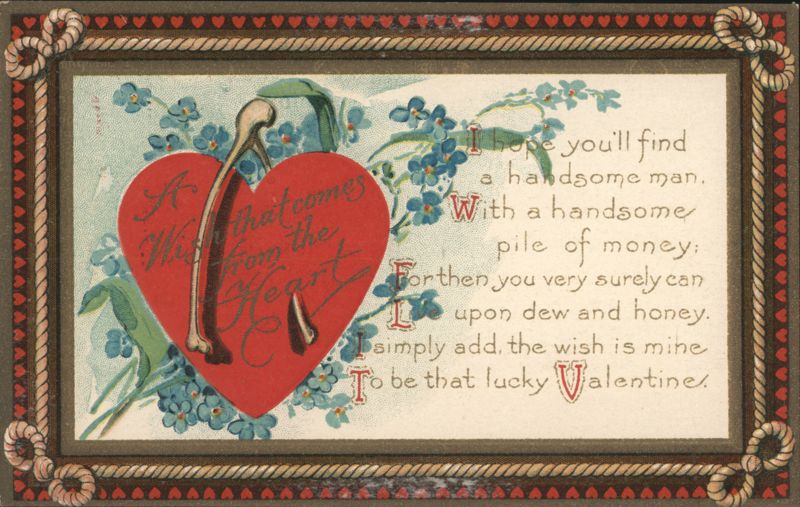 A
Wish that comes
from the
Heart
I hope you'll find
a handsome man,
With a handsome
pile of money;
For then you very surely can
Live upon dew and honey.
I simply add, the wish is mine
To be that lucky Valentine.